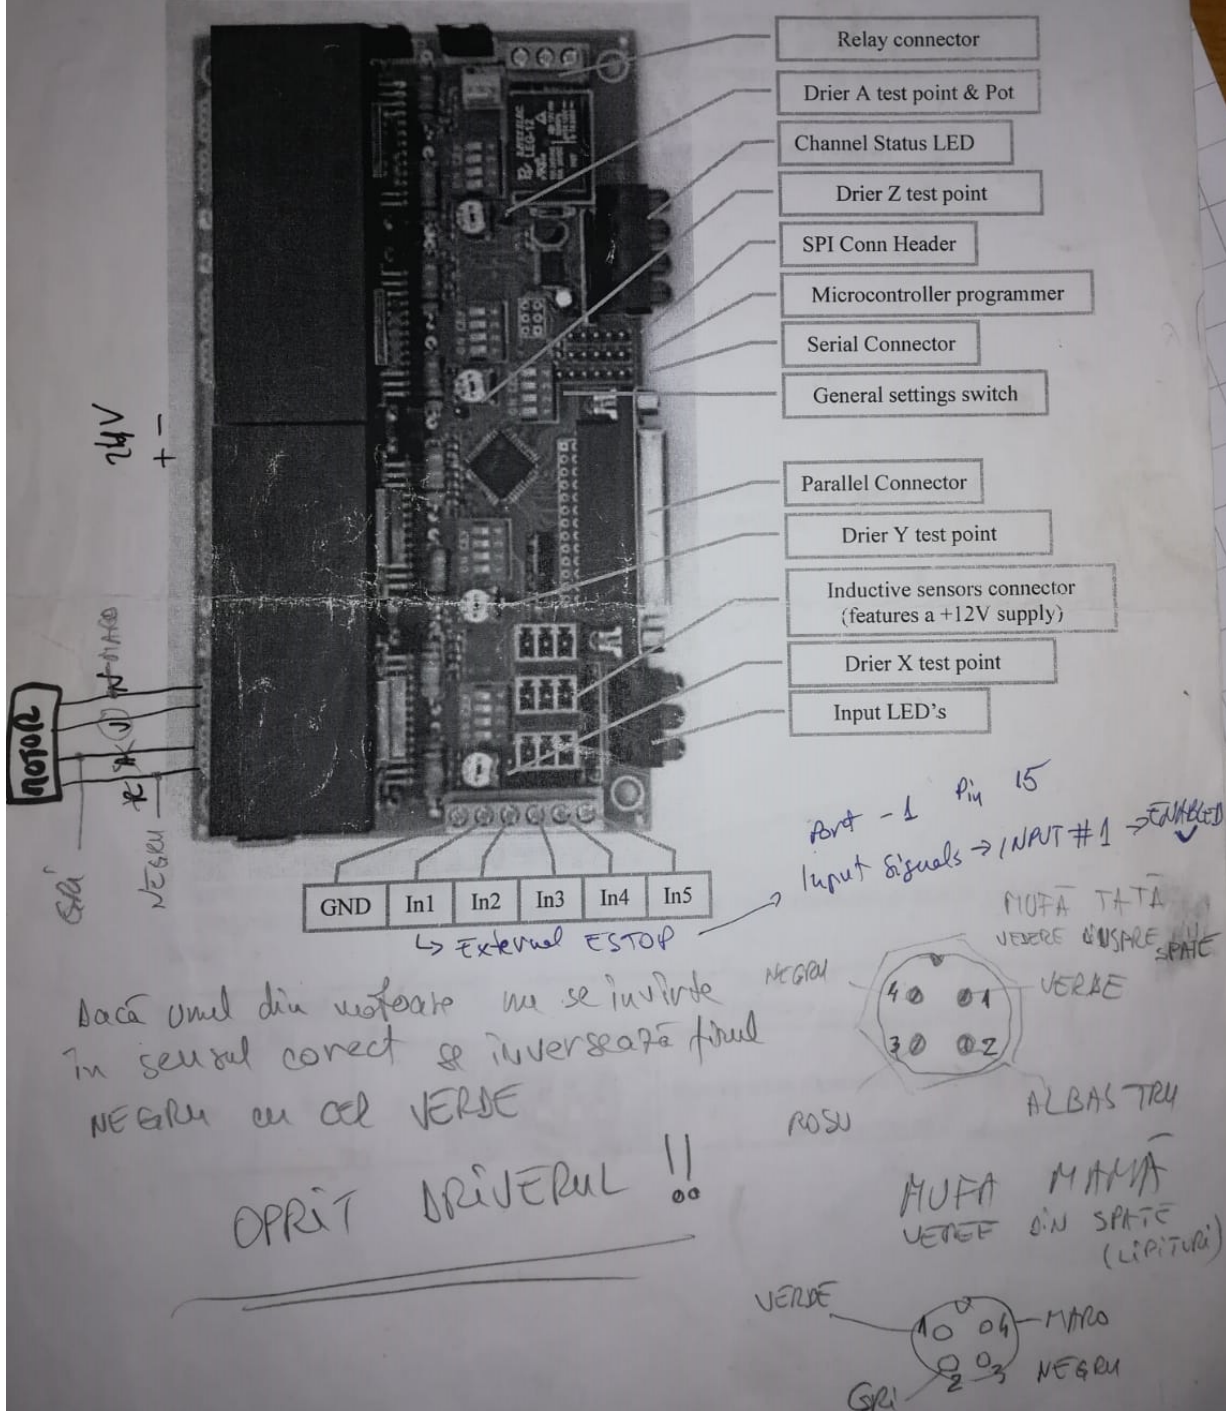 Relay connector
Drier A test point & Pot
Channel Status LED
Drier Z test point
SPI Conn Header
Microcontroller programmer
Serial Connector
General settings switch
24V
+ -
Parallel Connector
Drier Y test point
Inductive sensors connector
(features a +12V supply)
Drier X test point
Input LED's
MARO
MOTOR
GRI
NEGRU
Port - 1 Pin 15
Input Signals → INPUT #1 → ENABLED
GND In1 In2 In3 In4 In5
↳ External ESTOP
MUFĂ TATĂ
VEDERE DINSPRE SPATE
NEGRU
VERDE
4 1
3 2
ROSU
ALBASTRU
Dacă unul din motoare nu se invirte
în sensul corect se inversează firul
NEGRU cu CEL VERDE
OPRIT DRIVERUL !!
MUFA MAMĂ
VEDERE DIN SPATE
(LIPITURI)
VERDE
1 4
MARO
2 3
NEGRU
GRI